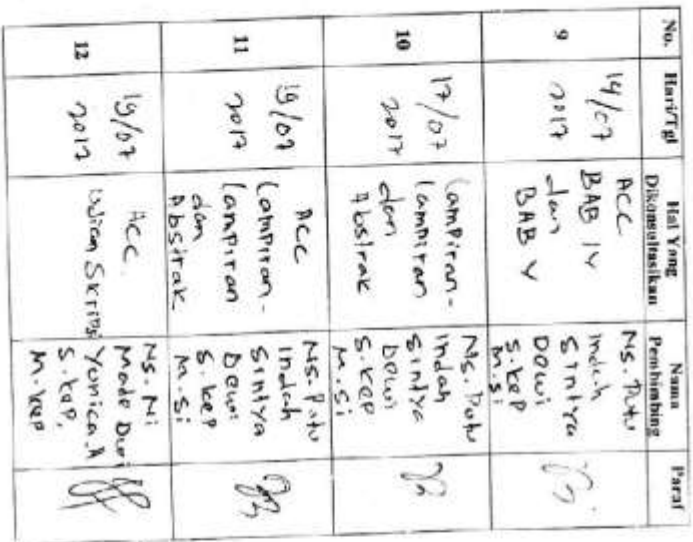 No.
Hari/Tgl
Hal Yang
Dikonsultasikan
Nama
Pembimbing
Paraf
9
14/07
2017
ACC
BAB IV
dan
BAB V
Ns. Putu
Indah
Sintya
Dewi
S.Kep
M.Si
10
17/07
2017
Lampiran-
lampiran
dan
Abstrak
Ns. Putu
Indah
Sintya
Dewi
S.Kep
M.Si
11
19/07
2017
ACC
Lampiran-
lampiran
dan
Abstrak
Ns. Putu
Indah
Sintya
Dewi
S.Kep
M.Si
12
19/07
2017
Acc.
Ujian Skripsi
Ns. Ni
Made Dwi
Yunica.A
S.Kep,
M.Kep